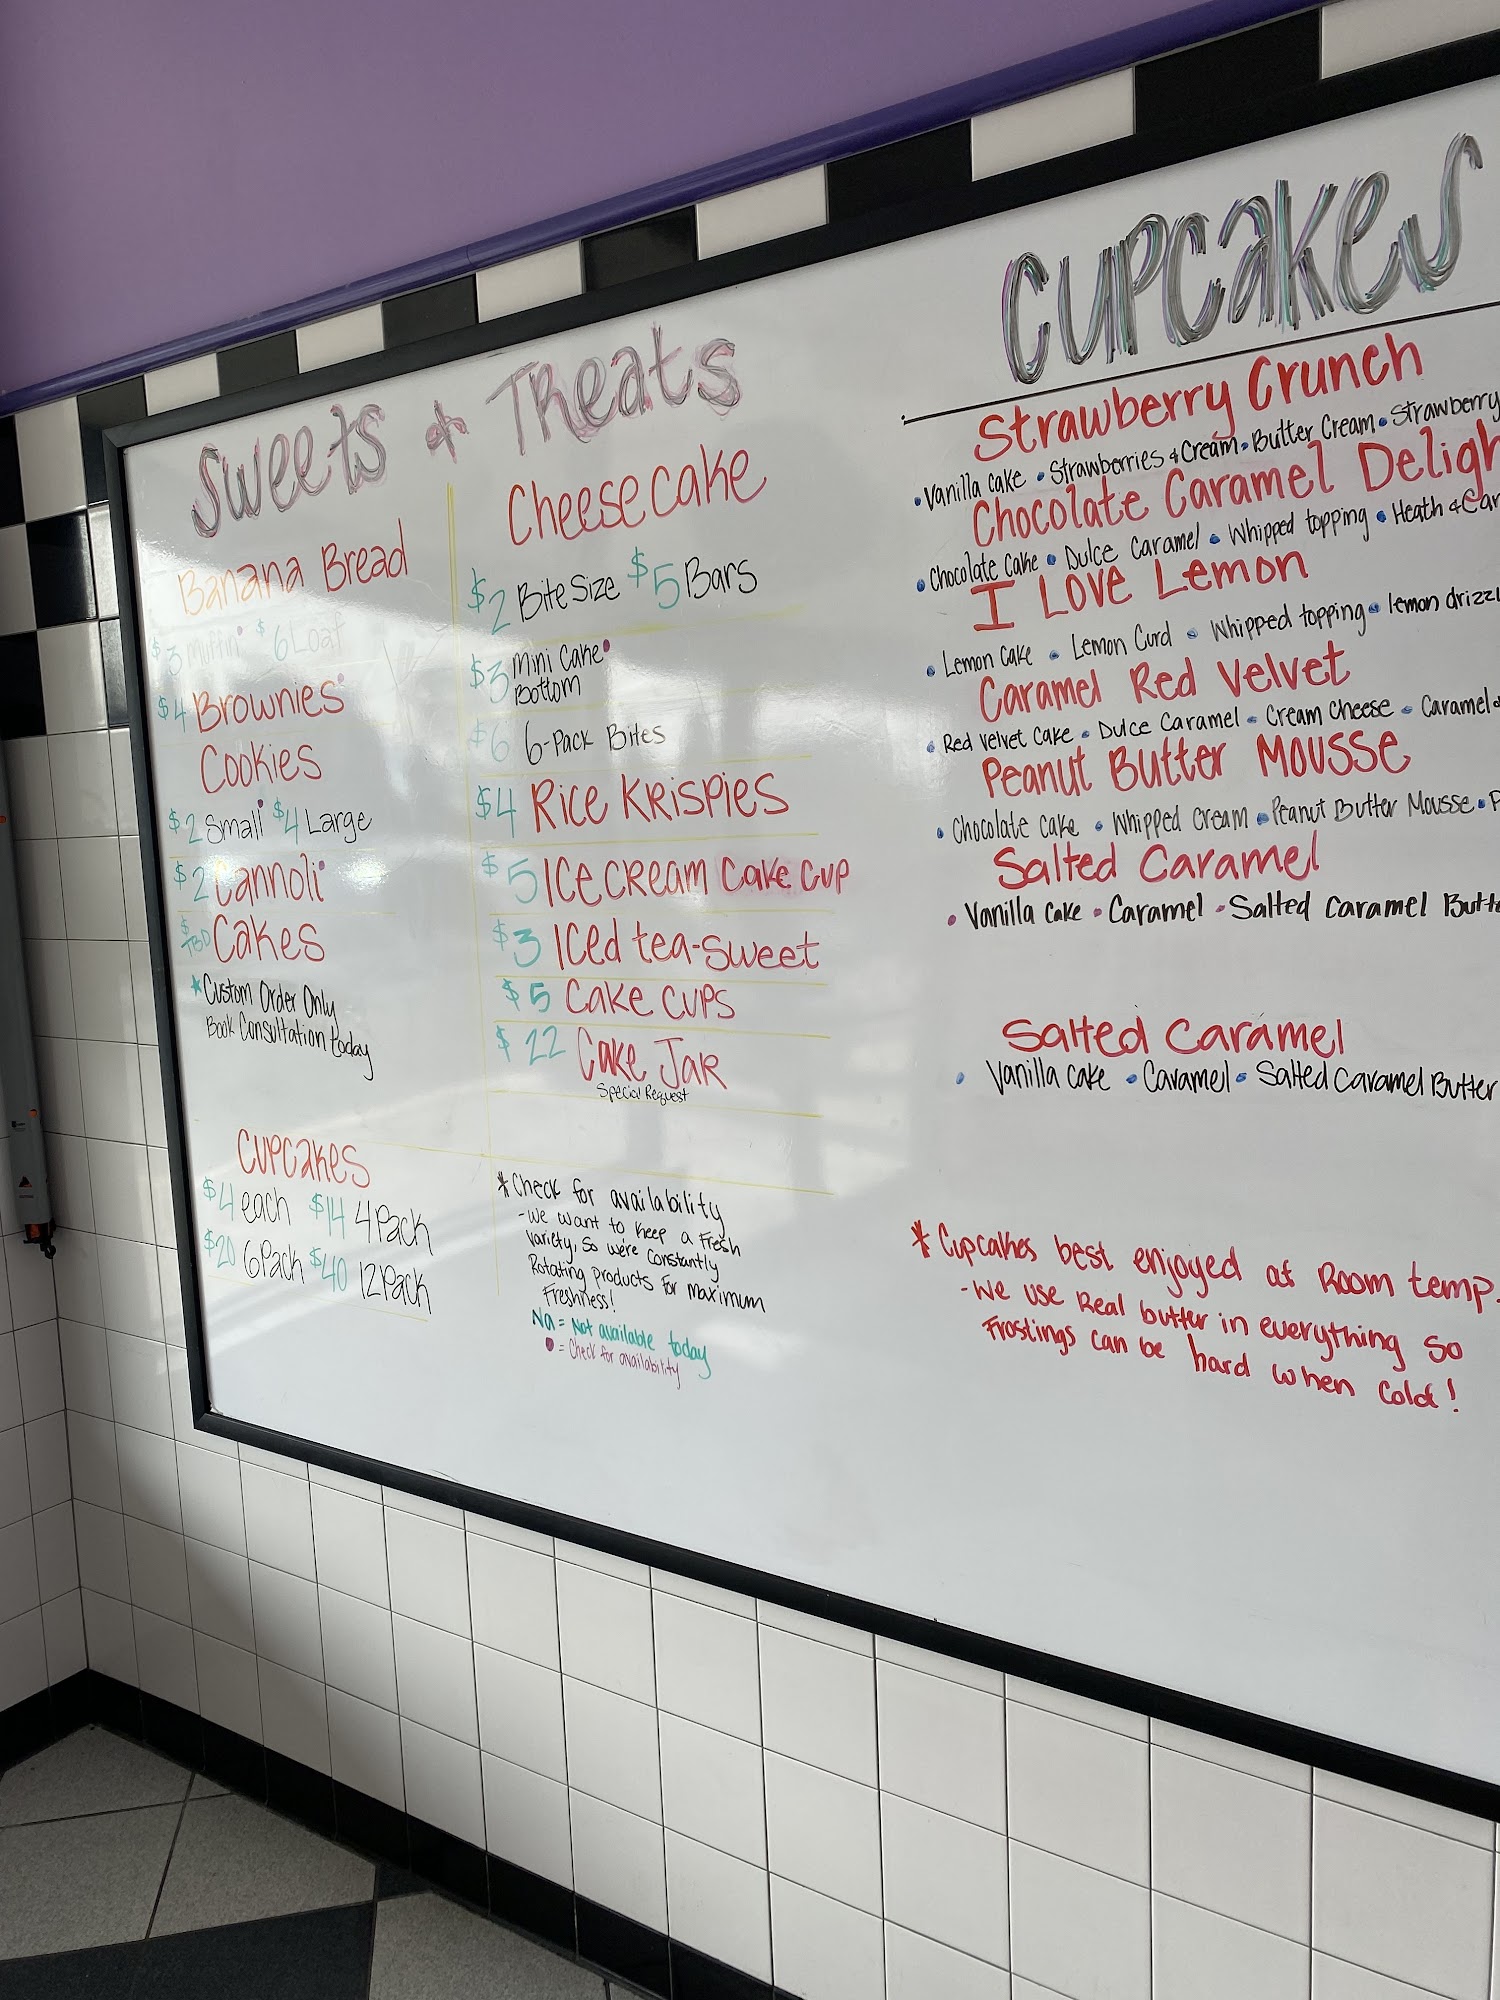 Sweets & Treats
Banana Bread
$3 Muffin $6 Loaf
$4 Brownies
Cookies
$2 Small $4 Large
$2 Cannoli
$TBD Cakes
*Custom Order Only
Book Consultation today
Cupcakes
$4 each $14 4Pack
$20 6Pack $40 12Pack
Cheesecake
$2 Bite Size $5 Bars
$3 Mini Cake
Bottom
$6 6-Pack Bites
$4 Rice Krispies
$5 Ice cream Cake Cup
$3 Iced tea-sweet
$5 Cake Cups
$22 Cake Jar
Special Request
*Check for availability
-We want to keep a Fresh
Variety, So we're Constantly
Rotating products for maximum
Freshness!
Na = Not available today
= Check for availability
Cupcakes
Strawberry Crunch
•Vanilla Cake •Strawberries & Cream •Butter Cream •Strawberry
Chocolate Caramel Deligh
•Chocolate Cake •Dulce Caramel •Whipped topping •Heath & Car
I Love Lemon
•Lemon Cake •Lemon Curd •Whipped topping •lemon drizzl
Caramel Red Velvet
•Red Velvet Cake •Dulce Caramel •Cream Cheese •Caramel
Peanut Butter Mousse
•Chocolate Cake •Whipped Cream •Peanut Butter Mousse •P
Salted Caramel
•Vanilla Cake •Caramel •Salted Caramel Butt
Salted Caramel
•Vanilla Cake •Caramel •Salted Caramel Butter
*Cupcakes best enjoyed at Room temp.
-We use Real butter in everything so
Frostings can be hard when Cold!